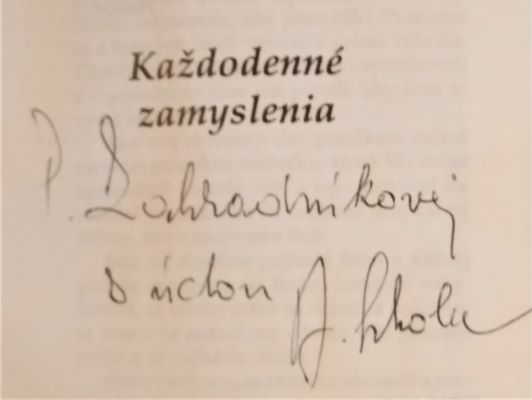 Každodenné
zamyslenia
P. Zahradníkovej
s úctou